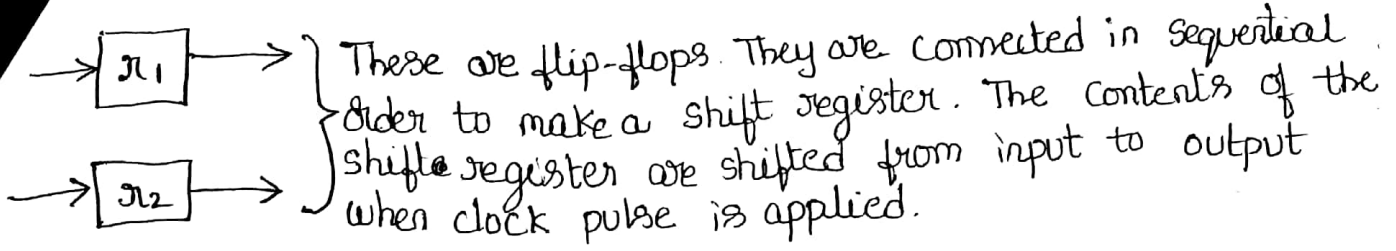 r1
These are flip-flops. They are connected in sequential
order to make a shift register. The contents of the
shifte register are shifted from input to output
r2
when clock pulse is applied.